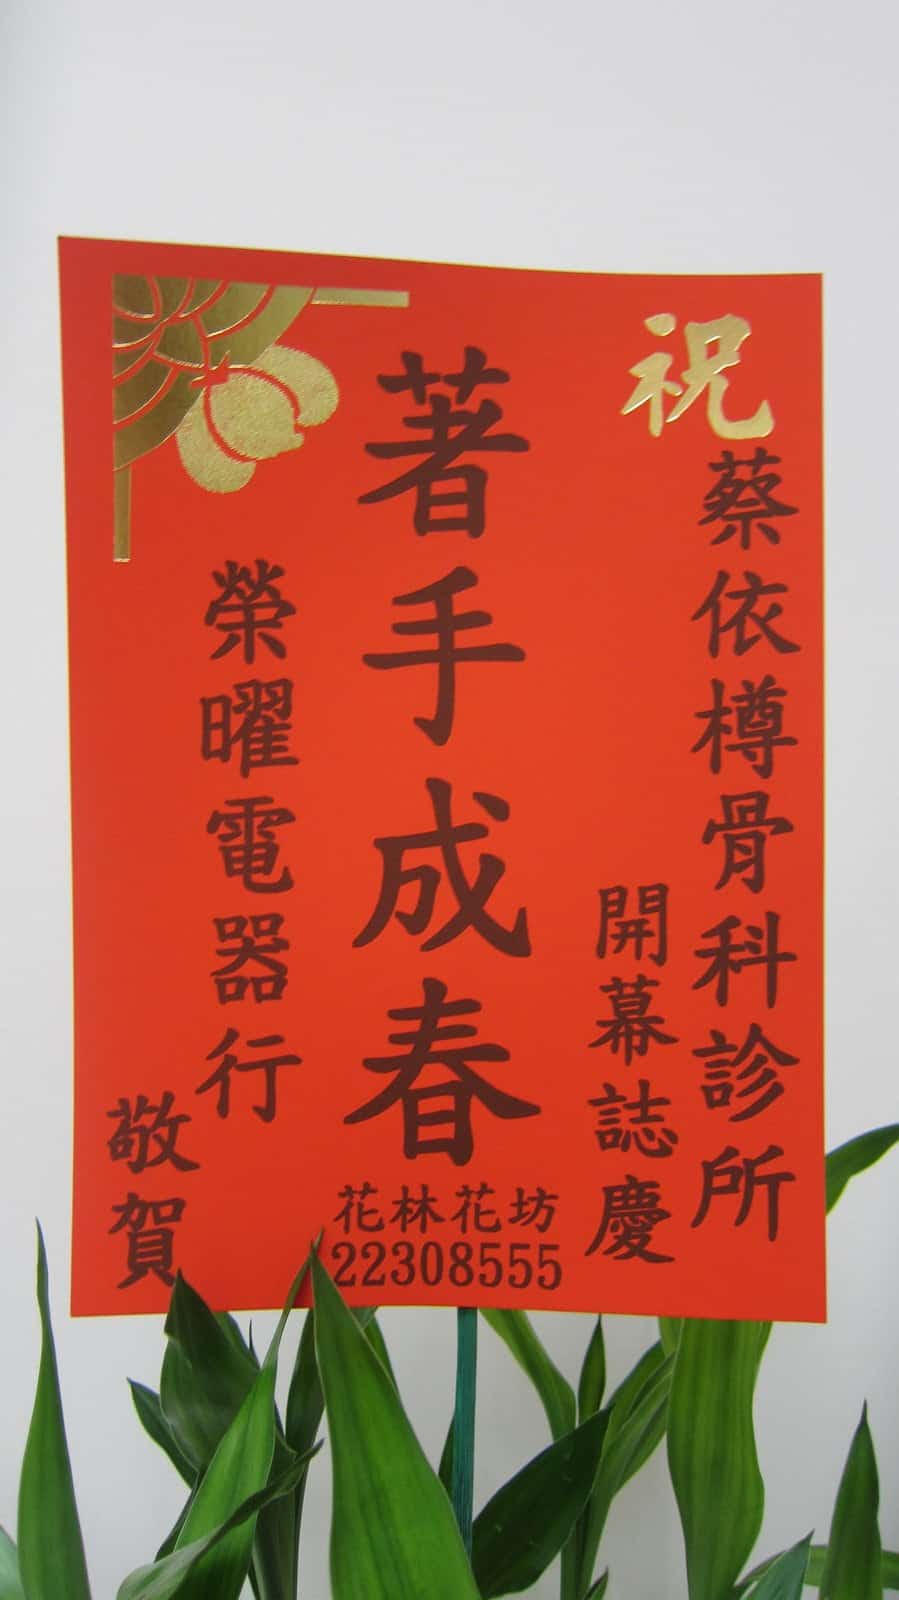 祝
蔡依樽骨科診所
開幕誌慶
著手成春
榮曜電器行
敬賀
花林花坊
22308555